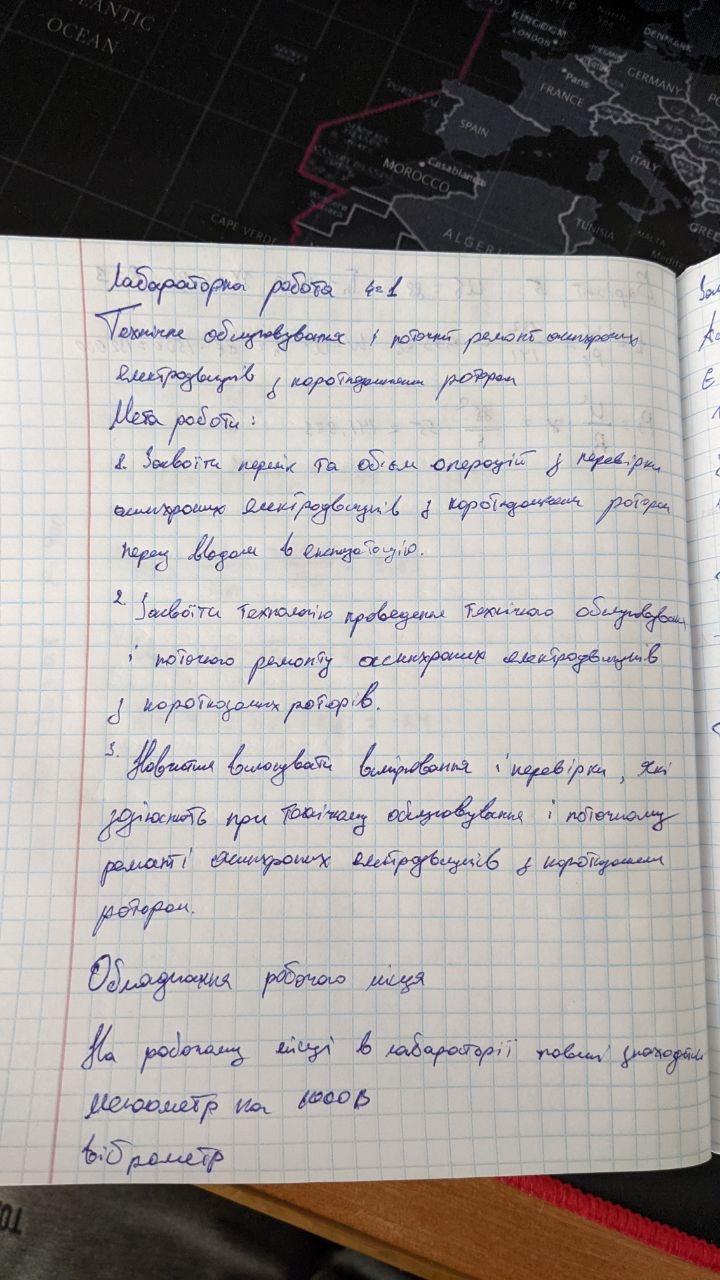 ATLANTIC
OCEAN
KINGDOM
LONDON
DENMARK
Paris
GERMANY
FRANCE
SPAIN
ITALY
MOROCCO
Casablanca
CAPE VERDE
TUNISIA
MALTA
ALGERI
GREE
Лабараторна робота №1
Технічне обслуговування і поточний ремонт асинхроних
електродвигунів з короткозамкненим ротором
Мета роботи:
1. Засвоїти перелік та обсьм операцій з перевірки
асинхроних електродвигунів з короткозамкненим ротором
перед вводом в експлуатацію.
2. Засвоїти технологію проведення технічного обслуговуван
і поточного ремонту асинхроних електродвигунів
з короткозаних роторів.
3. Навчитися виконувати вимірювання і перевірки, які
при технічному обслуговування і поточному
ремонті асинхроних електродвигунів з короткозамкненим
ротором.
Обладнання робочого місця
На робочому місці в лабараторії повині знаходитись
Мегаометр на 1000В
віброметр